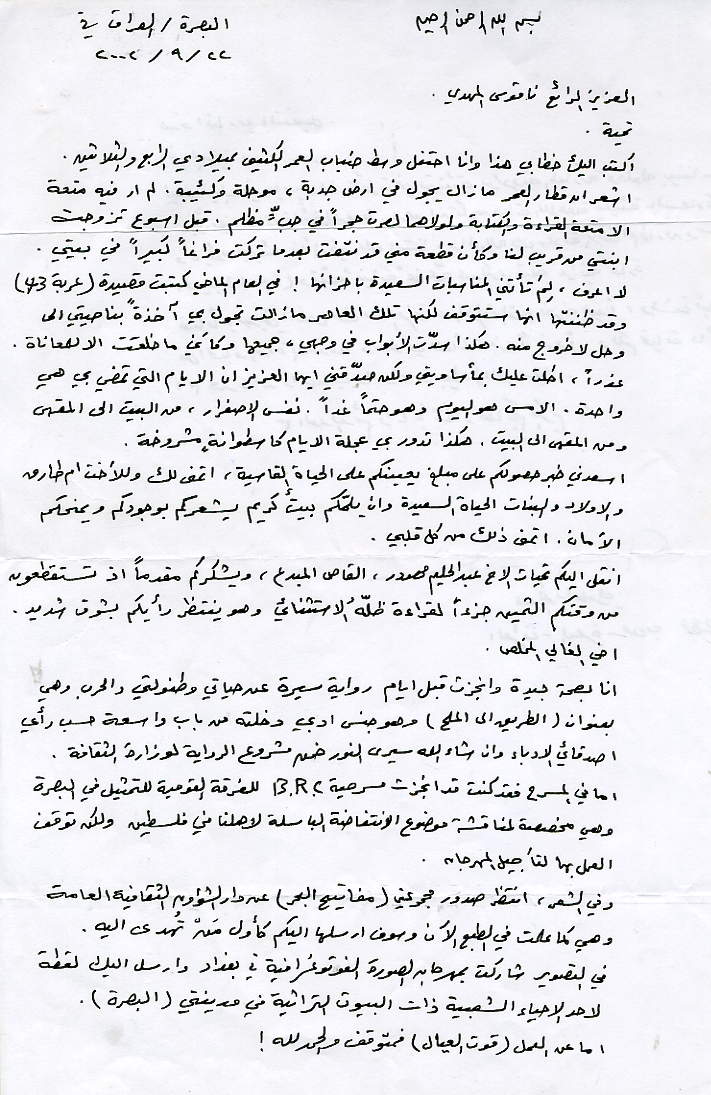 بسم الله الرحمن الرحيم
البصرة / العراق في
٢٢ / ٩ / ٢٠٠٢
العزيز الرائع ناقوس المهدي .
تحية .
اكتب اليك خطابي هذا وانا احتفل وسط ضباب العمر الكثيف بميلادي الرابع والثلاثين .
اشعر ان قطار العمر مازال يجول في ارض جدبة ، موحلة وكئيبة . لم ار فيه متعة
الا متعة القراءة والكتابة ولولاهما لصرت حجراً في جبٍّ مظلم . قبل اسبوع تزوجت
ابنتي من قريب لنا وكأن قطعة مني قد نتفت بعدما تركت فراغاً كبيراً في بيتي .
لا اعرف ، لِمَ تأتني المناسبات السعيدة باحزانها ! في العام الماضي كتبت قصيدة (عربة 43)
وقد ظننتها انها ستتوقف لكنها تلك العاصر مازالت تجول بي آخذةً بناصيتي الى
وحل لا خروج منه . هكذا سدّت الأبواب في وجهي ، جميعها وكأني ما خلقت الا لمعاناة .
عذراً ، اطلت عليك بمأساويتي ولكن صدّقني ايها العزيز ان الايام التي تمضي بي هي
واحدة . الامس هو اليوم وهو حتماً غداً . نفس الإصفرار ، من البيت الى المقهى
ومن المقهى الى البيت . هكذا تدور بي عجلة الايام كاسطوانةٍ مشروخة .
اسعدني خبر حصولكم على مبلغ يعينكم على الحياة القاسية ، اتمنى لك وللأخت ام طارق
والاولاد والبنات الحياة السعيدة وان يلمّكم بيتٌ كريم يشعركم بوجودكم ويمنحكم
الأمان . اتمنى ذلك من كل قلبي .
انقل اليكم تحيات الاخ عبدالحليم مهودر ، القاص المبدع ، ويشكركم مقدماً اذ تستقطعون
من وقتكم الثمين جزءاً لقراءة ظلّهُ الاستثنائي وهو ينتظر رأيكم بشوق شديد .
اخي الغالي المخلص .
انا بصحة جيدة وانجزت قبل ايام رواية سيرة عن حياتي وطفولتي والحرب وهي
بعنوان (الطريق الى الملح) وهو جنس ادبي دخلته من باب واسعة حسب رأي
اصدقائي الادباء وان شاء الله سيرى النور ضمن مشروع الرواية لوزارة الثقافة .
اما في المسرح فقد كنت قد انجزت مسرحية B.R.C للفرقة القومية للتمثيل في البصرة
وهي مخصصة لمناقشة موضوع الانتفاضة الباسلة لاهلنا في فلسطين ولكن توقف
العمل بها لتأجيل المهرجان .
وفي الشعر ، انتظر صدور مجموعتي (مفاتيح البحر) عن دار الشؤون الثقافية العامة
وهي كما علمت في الطبع الآن وسوف ارسلها اليكم كأول مَنْ تُهدى اليه .
في التصوير شاركت بمهرجان الصورة الفوتوغرافية في بغداد وارسل اليك لقطة
لاحد الاحياء الشعبية ذات البيوت التراثية في مدينتي (البصرة) .
اما عن العمل (قوت العيال) فمتوقف والحمد لله !